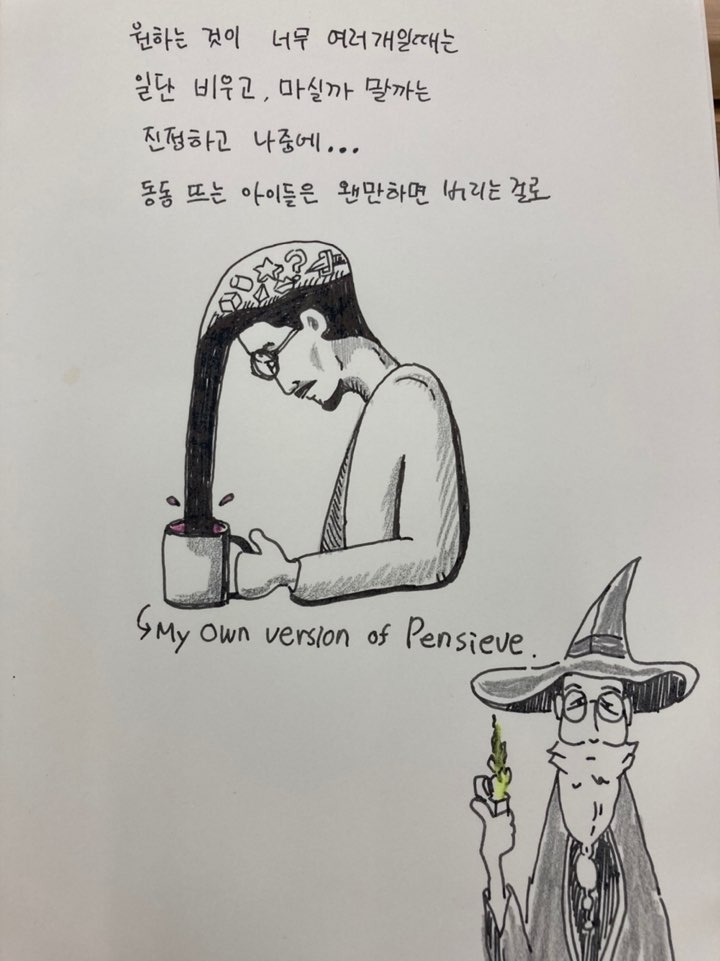 원하는 것이 너무 여러개일때는
일단 비우고, 마실까 말까는
진정하고 나중에...
동동 뜨는 아이들은 왠만하면 버리는걸로
?
My own version of Pensieve.